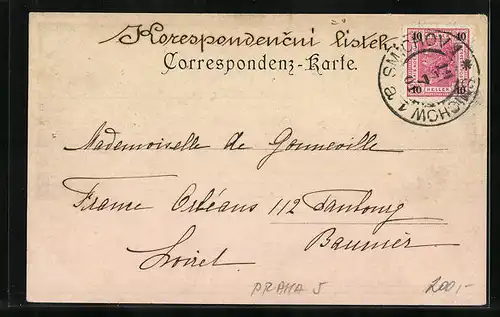 Korespondenční lístek
Correspondenz-Karte.
10 10
10 HELLER 10
SMÍCHOV 1 * SMICHOW 1
Mademoiselle de Gonneville
France Orléans 112 Faubourg
Bannier
Loiret
PRAHA 5
200,-